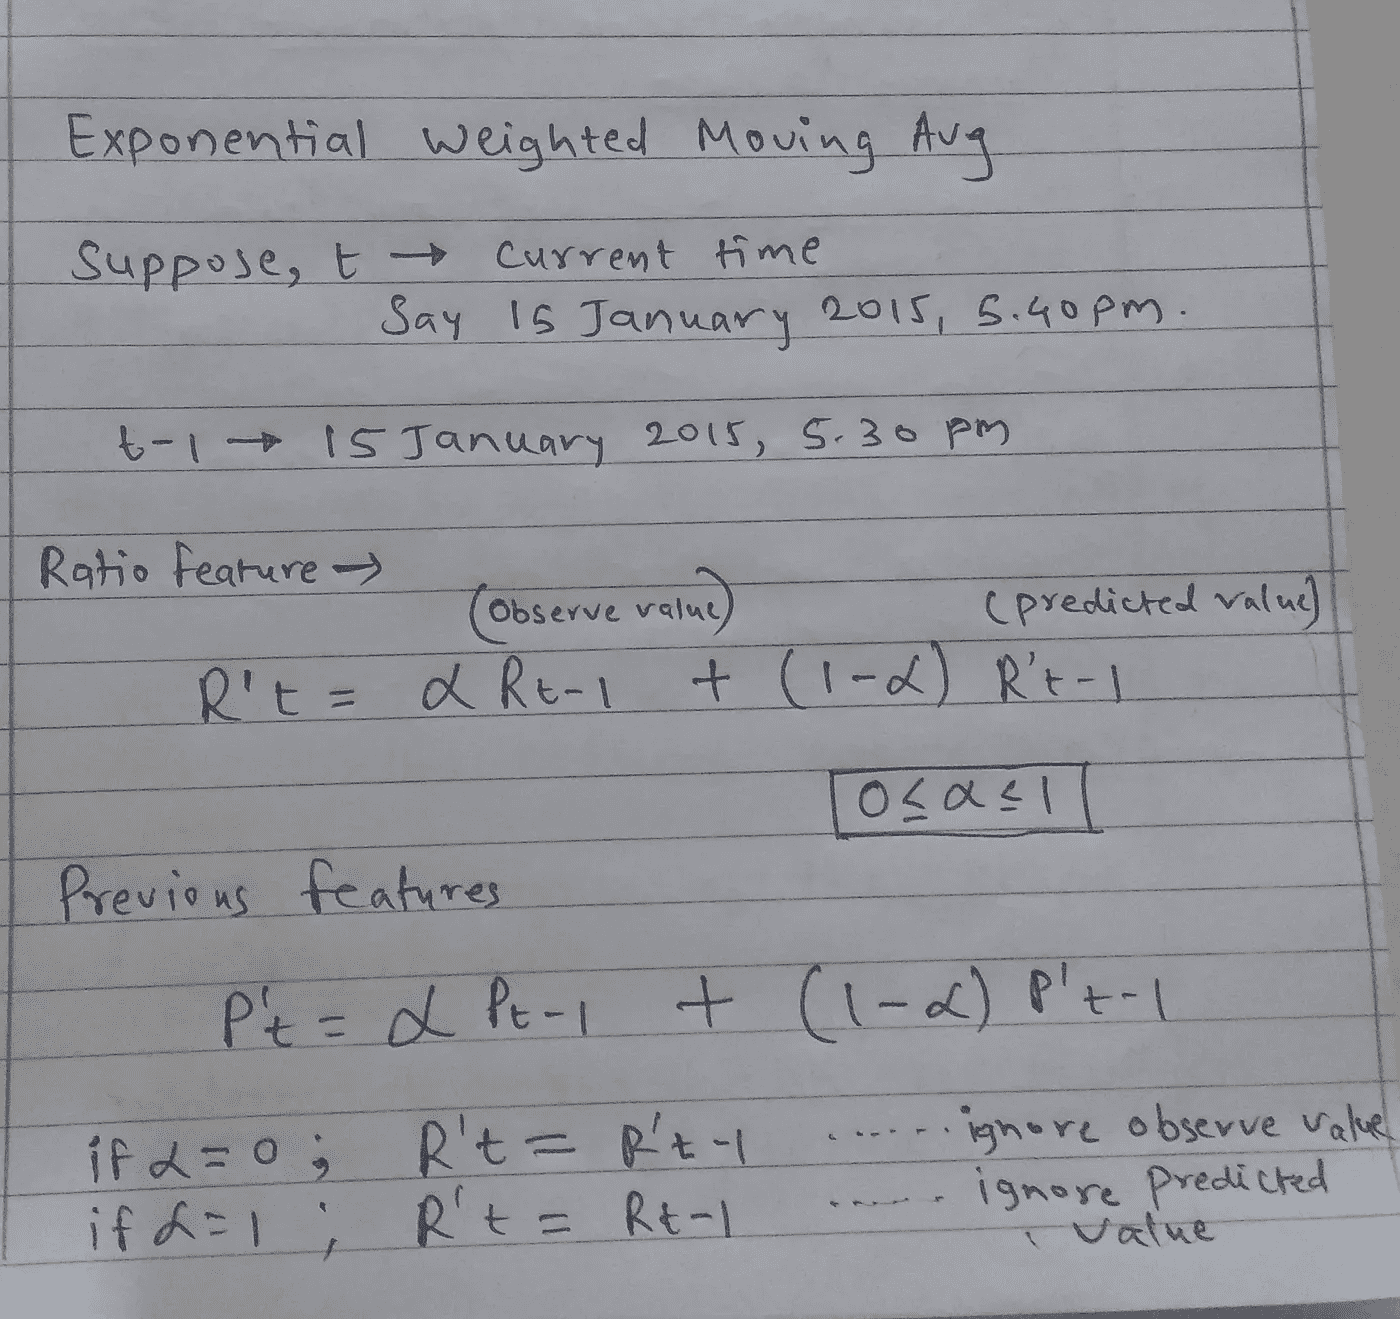 Exponential Weighted Moving Avg
Suppose, t → Current time
Say 15 January 2015, 5.40 pm.
t-1 → 15 January 2015, 5.30 pm
Ratio feature →
(Observe value) (predicted value)
R't = α Rt-1 + (1-α) R't-1
0≤α≤1
Previous features
P't = α Pt-1 + (1-α) P't-1
if α=0 ; R't = R't-1 ...... ignore observe value
if α=1 ; R't = Rt-1 ...... ignore predicted
value